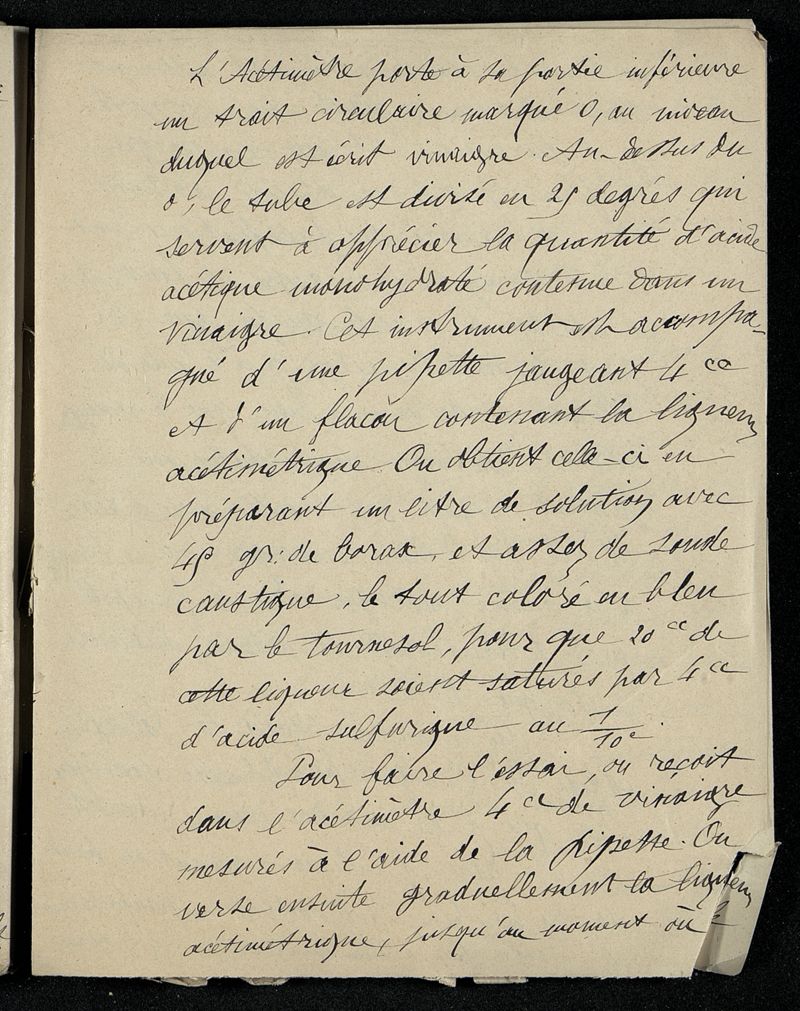 L'Acétimètre porte à sa partie inférieure
un trait circulaire marqué 0, au niveau
duquel est écrit vinaigre. Au-dessus du
0, le tube est divisé en 25 degrés qui
servent à apprécier la quantité d'acide
acétique monohydraté contenue dans un
vinaigre. Cet instrument est accompa-
gné d'une pipette jaugeant 4 cc
et d'un flacon contenant la liqueur
acétimétrique. On obtient celle-ci en
préparant un litre de solution avec
45 gr: de borax, et assez de soude
caustique, le tout coloré en bleu
par le tournesol, pour que 20 cc de
cette liqueur soient saturés par 4 cc
d'acide sulfurique au 1/10e.
Pour faire l'essai, on reçoit
dans l'acétimètre 4 cc de vinaigre
mesurés à l'aide de la pipette. On
verse ensuite graduellement la liqueur
acétimétrique, jusqu'au moment où